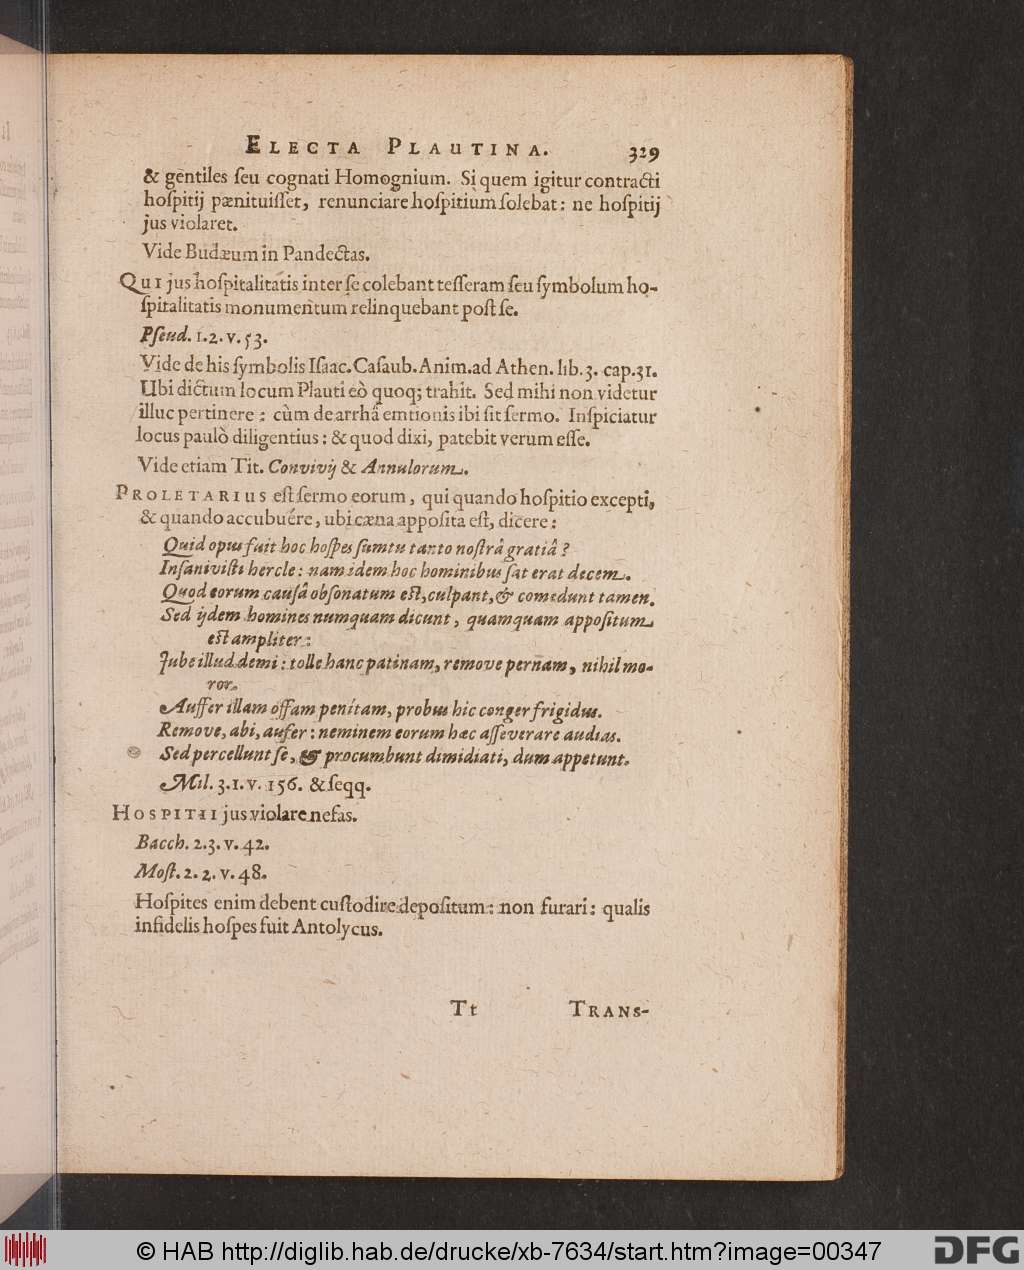 ELECTA PLAUTINA. 329
& gentiles ſeu cognati Homognium. Si quem igitur contracti
hoſpitij pænituiſſet, renunciare hoſpitium ſolebat: ne hoſpitij
jus violaret.
Vide Budæum in Pandectas.
QUI jus hoſpitalitatis inter ſe colebant teſſeram ſeu ſymbolum ho-
ſpitalitatis monumentum relinquebant poſt ſe.
Pſeud. 1. 2. v. 53.
Vide de his ſymbolis Iſaac. Caſaub. Anim. ad Athen. lib. 3. cap. 31.
Ubi dictum locum Plauti eò quoq; trahit. Sed mihi non videtur
illuc pertinere: cùm de arrhâ emtionis ibi ſit ſermo. Inſpiciatur
locus paulò diligentius: & quod dixi, patebit verum eſſe.
Vide etiam Tit. Convivij & Annulorum.
PROLETARIUS eſt ſermo eorum, qui quando hoſpitio excepti,
& quando accubuére, ubi cæna appoſita eſt, dicere:
Quid opus fuit hoc hoſpes ſumtu tanto noſtrâ gratiâ?
Inſaniviſti hercle: nam idem hoc hominibus ſat erat decem.
Quod eorum cauſâ obſonatum eſt, culpant, & comedunt tamen.
Sed ijdem homines numquam dicunt, quamquam appoſitum
eſt ampliter:
Jube illud demi: tolle hanc patinam, remove pernam, nihil mo-
ror.
Auffer illam offam penitam, probus hic conger frigidus.
Remove, abi, aufer: neminem eorum hæc aſſeverare audias.
Sed percellunt ſe, & procumbunt dimidiati, dum appetunt.
Mil. 3. 1. v. 156. & ſeqq.
HOSPITII jus violare nefas.
Bacch. 2. 3. v. 42.
Moſt. 2. 2. v. 48.
Hoſpites enim debent cuſtodire depoſitum: non furari: qualis
infidelis hoſpes fuit Antolycus.
Tt TRANS-
© HAB http://diglib.hab.de/drucke/xb-7634/start.htm?image=00347
DFG